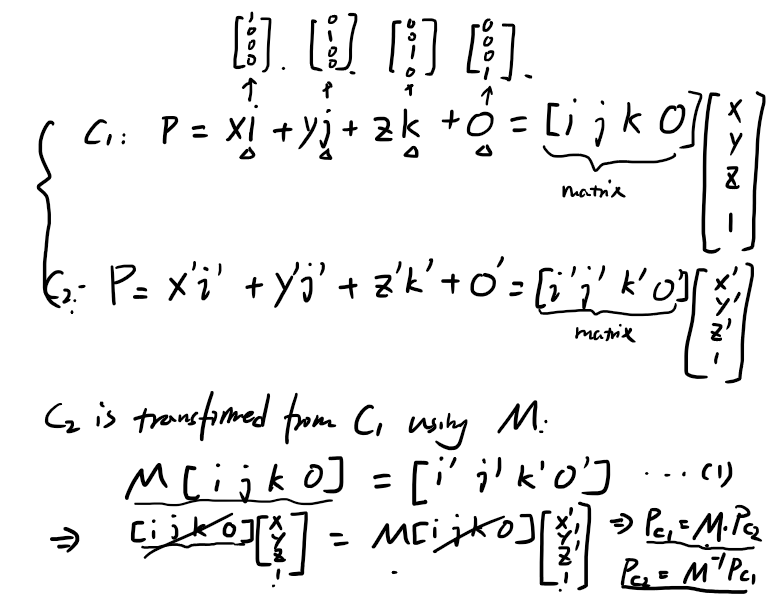 [1 0 0 0] . [0 1 0 0] . [0 0 1 0] [0 0 0 1] .
C₁: P = xi + yj + zk + O = [i j k O] [x y z 1]
matrix
C₂: P = x'i' + y'j' + z'k' + O' = [i' j' k' O'] [x' y' z' 1]
matrix
C₂ is transformed from C₁ using M:
M [i j k O] = [i' j' k' O'] ... (1)
⇒ [i j k O] [x y z 1] = M[i j k O] [x' y' z' 1] ⇒ P_C₁ = M·P_C₂
P_C₂ = M⁻¹P_C₁